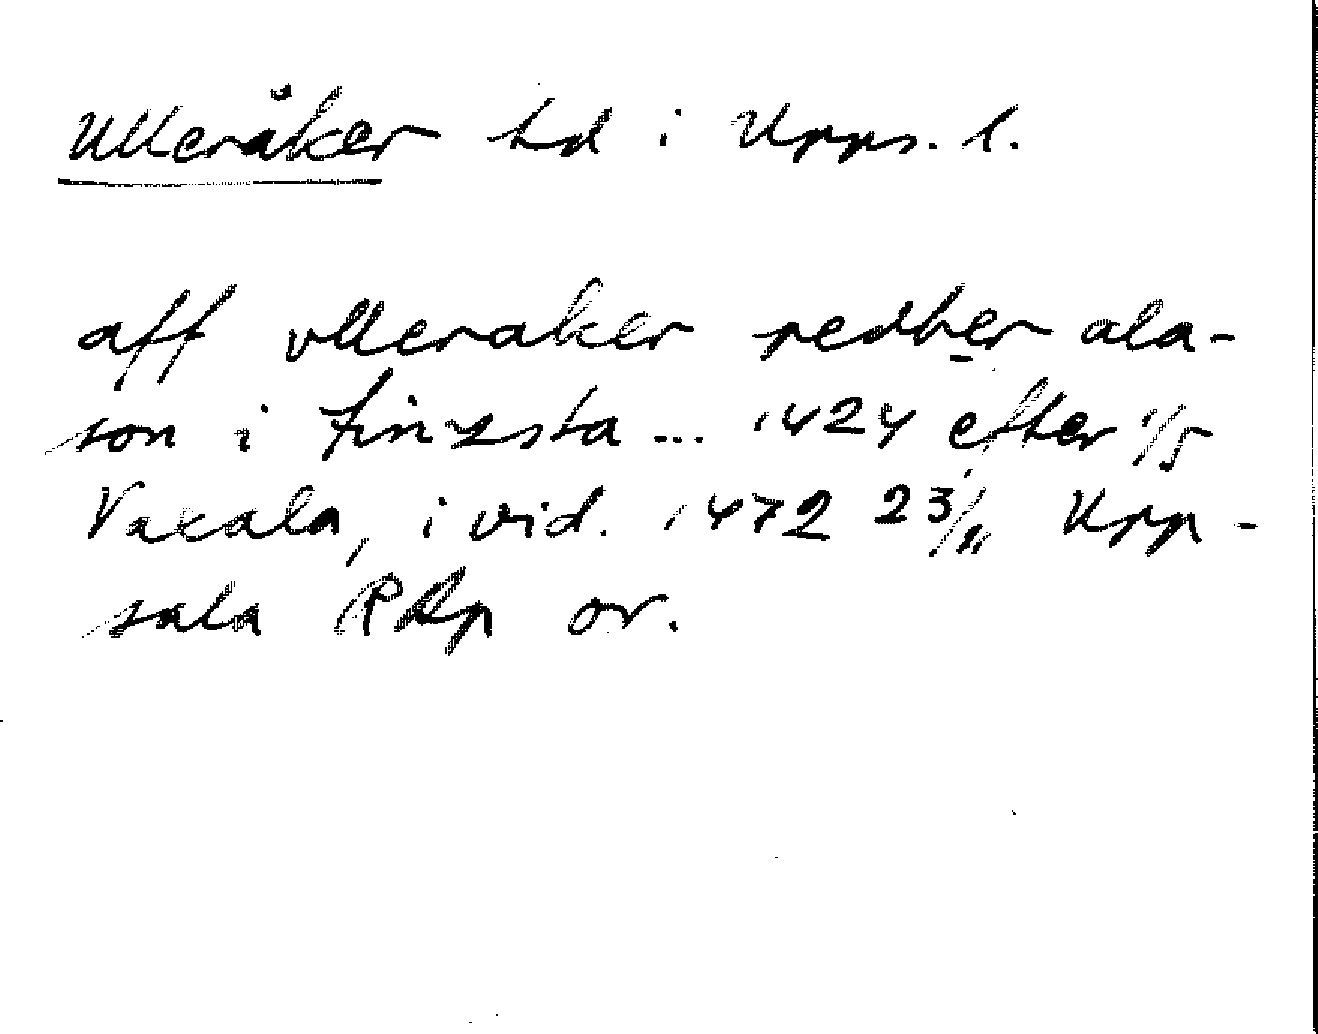 Ulleråker hd i Upps. l.
aff vlleraker redher ola-
son i finzsta ... 1424 efter 1/5
Vaxala, i vid. 1472 23/11 Upp-
sala RAp or.